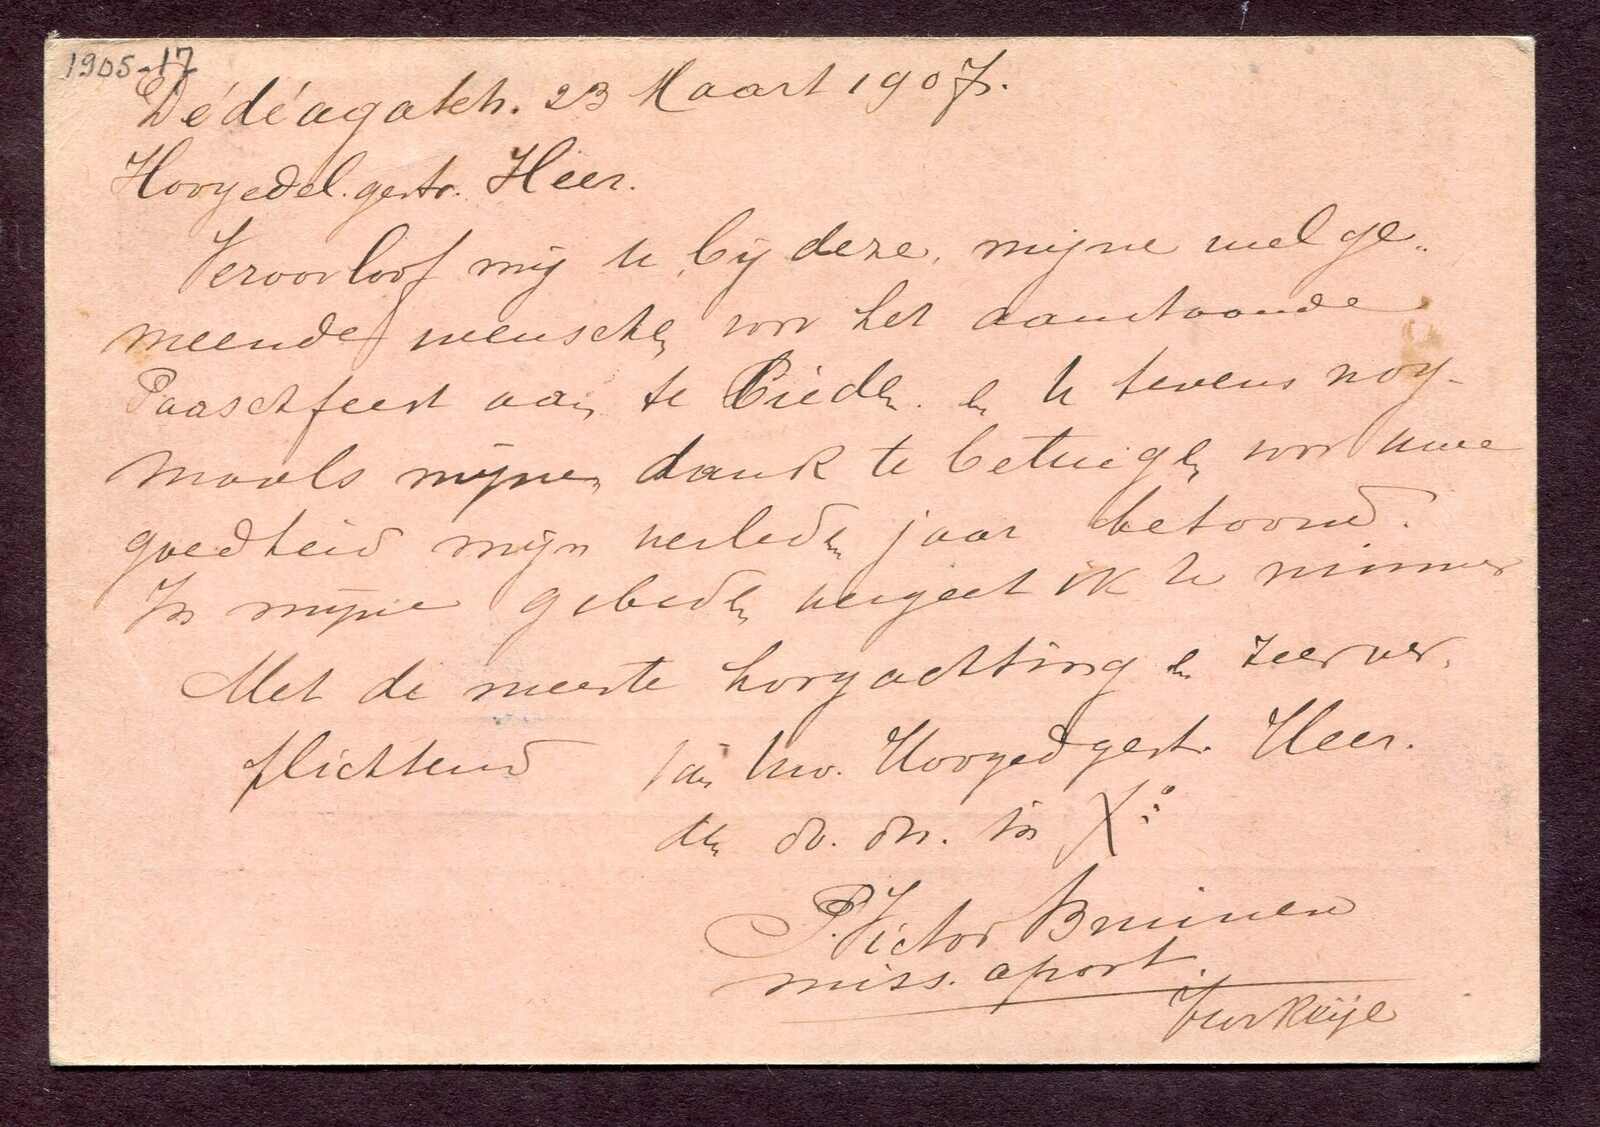 1905-17
Dédéagatch. 23 Maart 1907.
Hoogedel.gestr. Heer.
Veroorloof mij U bij deze, mijne wel ge-
meende wenschen voor het aanstaande
Paaschfeest aan te bieden en U tevens nog-
maals mijnen dank te betuigen voor uwe
goedheid mijn verleden jaar betoond.
In mijne gebeden vergeet ik U nimmer
Met de meeste hoogachting en zeer ver-
plichtend Van Uw. Hooged gestr. Heer.
den dv. dn. in X°
P. Victor Bruinen
miss. apost.
Turkije